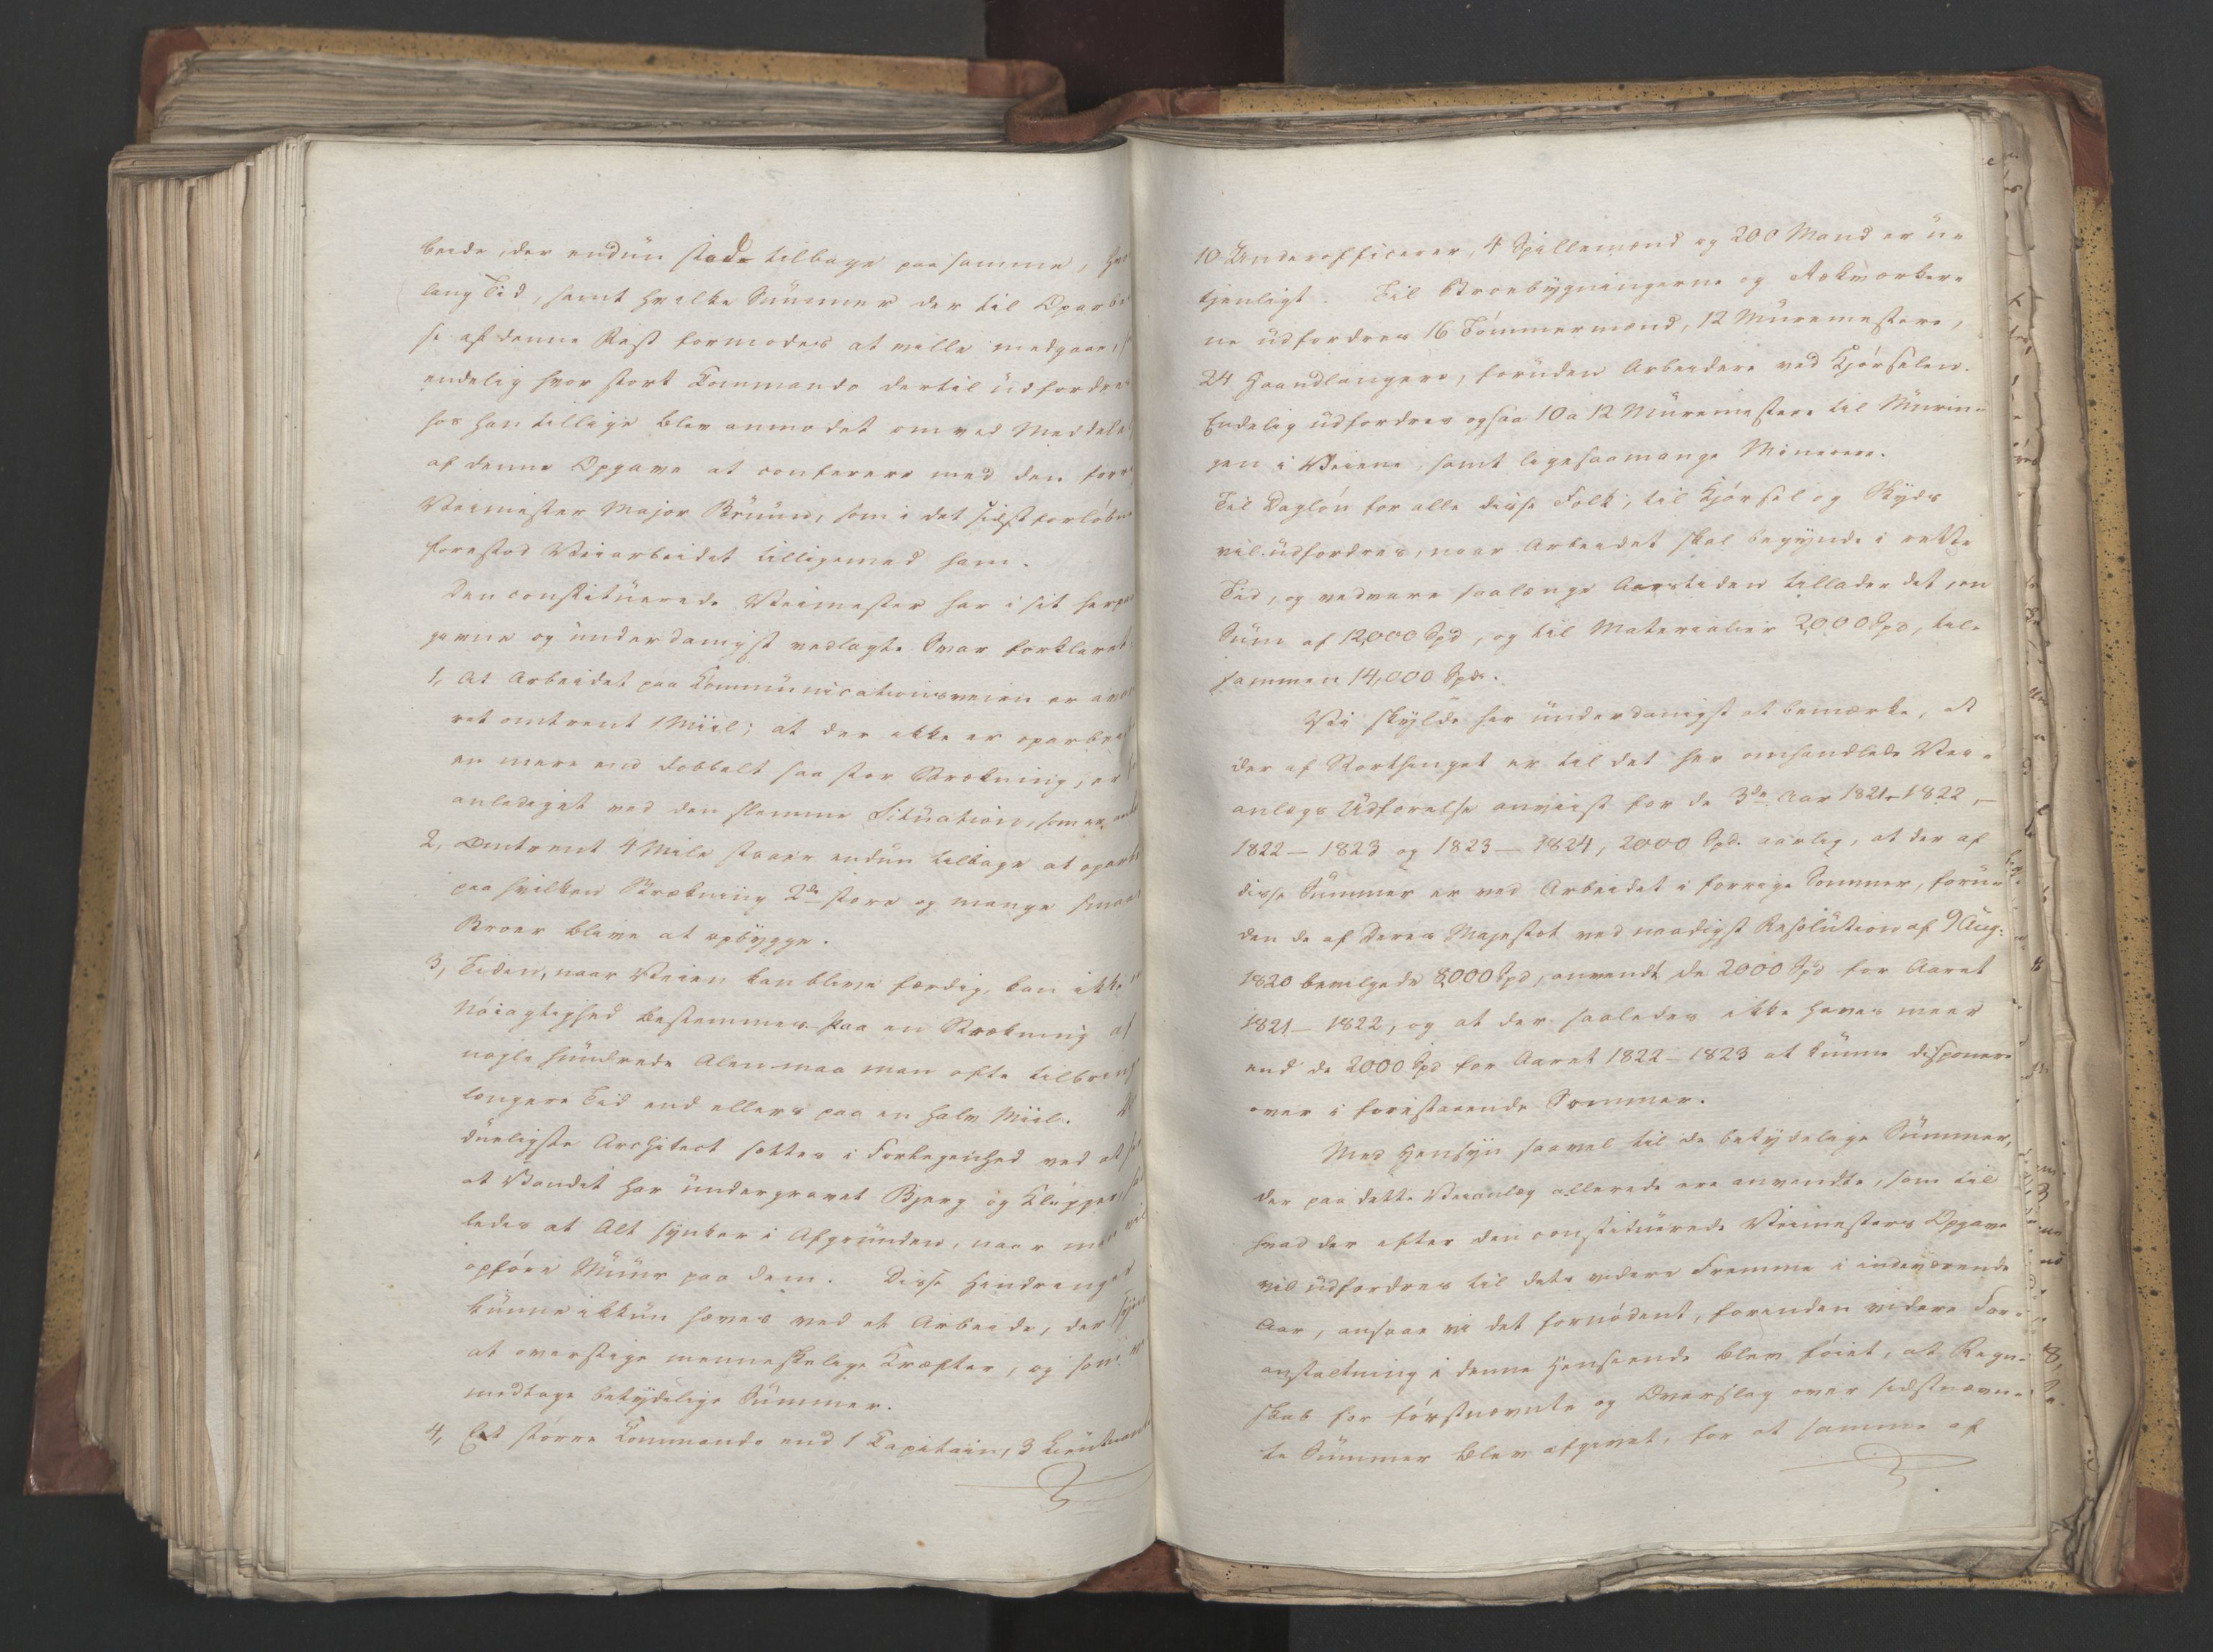 beide, der endnu stode tilbage paa samme,
lang Tid, samt hvilke Summer der til Oparbei
se af denne Rest formodes at ville medgaae,
endelig hvor stort Commando dertil udfordres
hos han tillige blev anmodet om ved Meddelel
af denne Opgave at conferere med den forr
Veimester Major Bruun, som i det sidst forløbne
forestod Veiarbeidet tilligemed ham.
Den constituerede Veimester har i sit her
gevne og underdanigst vedlagte Svar forklaret
1, At Arbeidet paa Communicationsveien er avan
ret omtrent 1 Miil; at der ikke er oparbei
en mere end dobbelt saa stor Strækning, er
anlediget ved den slemme Situation, som er
2, Omtrent 4 Mile staaer endnu tilbage at oparbe
paa hvilken Strækning 2de store og mange smaa
Broer blive at opbygge.
3, Tiden, naar Veien kan blive færdig, kan ikke
Nøiagtighed bestemmes. Paa en Strækning af
nogle hundrede Alen maa man ofte tilbringe
længere Tid end ellers paa en halv Miil.
dueligste Architect sættes i Forlegenhed ved at
at Vandet har undergravet Bjerg og Klipper,
ledes at Alt synker i Afgrunden, naar man vil
opføre Muur paa dem. Disse Hindringer
kunne ikkun hæves ved et Arbeide, der synes
at overstige menneskelige Kræfter, og som
medtage betydelige Summer.
4, Et større Commando end 1 Capitain, 3 Lieutnant
10 Underofficerer, 4 Spillemænd og 200 Mand er u
tjenligt. Til Broebygningerne og Rækværker
ne udfordres 16 Tømmermænd, 12 Muremestere,
24 Haandlangere, foruden Arbeidere ved Kjørselen.
Endelig udfordres ogsaa 10 a 12 Muremestere til Murin
gen i Veiene, samt ligesaamange Minerere.
Til Dagløn for alle disse Folk, til Kjørsel og Skyds
vil udfordres, naar Arbeidet skal begynde i rette
Tid, og vedvare saalænge Aarstiden tillader det, en
Sum af 12,000 Spd, og til Materialier 2000 Spd, til
sammen 14,000 Spd.
Vi skylde her underdanigst at bemærke, at
der af Storthinget er til det her omhandlede Vei
anlægs Udførelse anviist for de 3de Aar 1821-1822,
1822 — 1823 og 1823 — 1824, 2000 Spd. aarlig, at der af
disse Summer er ved Arbeidet i forrige Sommer, foru
den de af Deres Majestæt ved naadigst Resolution af 9 Aug:
1820 bevilgede 8000 Spd, anvendt de 2000 Spd for Aaret
1821 — 1822, og at der saaledes ikke haves meer
end de 2000 Spd for Aaret 1822 — 1823 at kunne disponere
over i forestaaende Sommer.
Med Hensyn saavel til de betydelige Summer,
der paa dette Veianlæg allerede ere anvendte, som til
hvad der efter den constituerede Veimesters Opgave
vil udfordres til dets videre Fremme i indeværende
Aar, ansaae vi det fornødent, forinden videre For
anstaltning i denne Henseende blev føiet, at Regn
skab for førstnævnte og Overslag over sidstnævn
te Summer blev afgivet, for at samme af